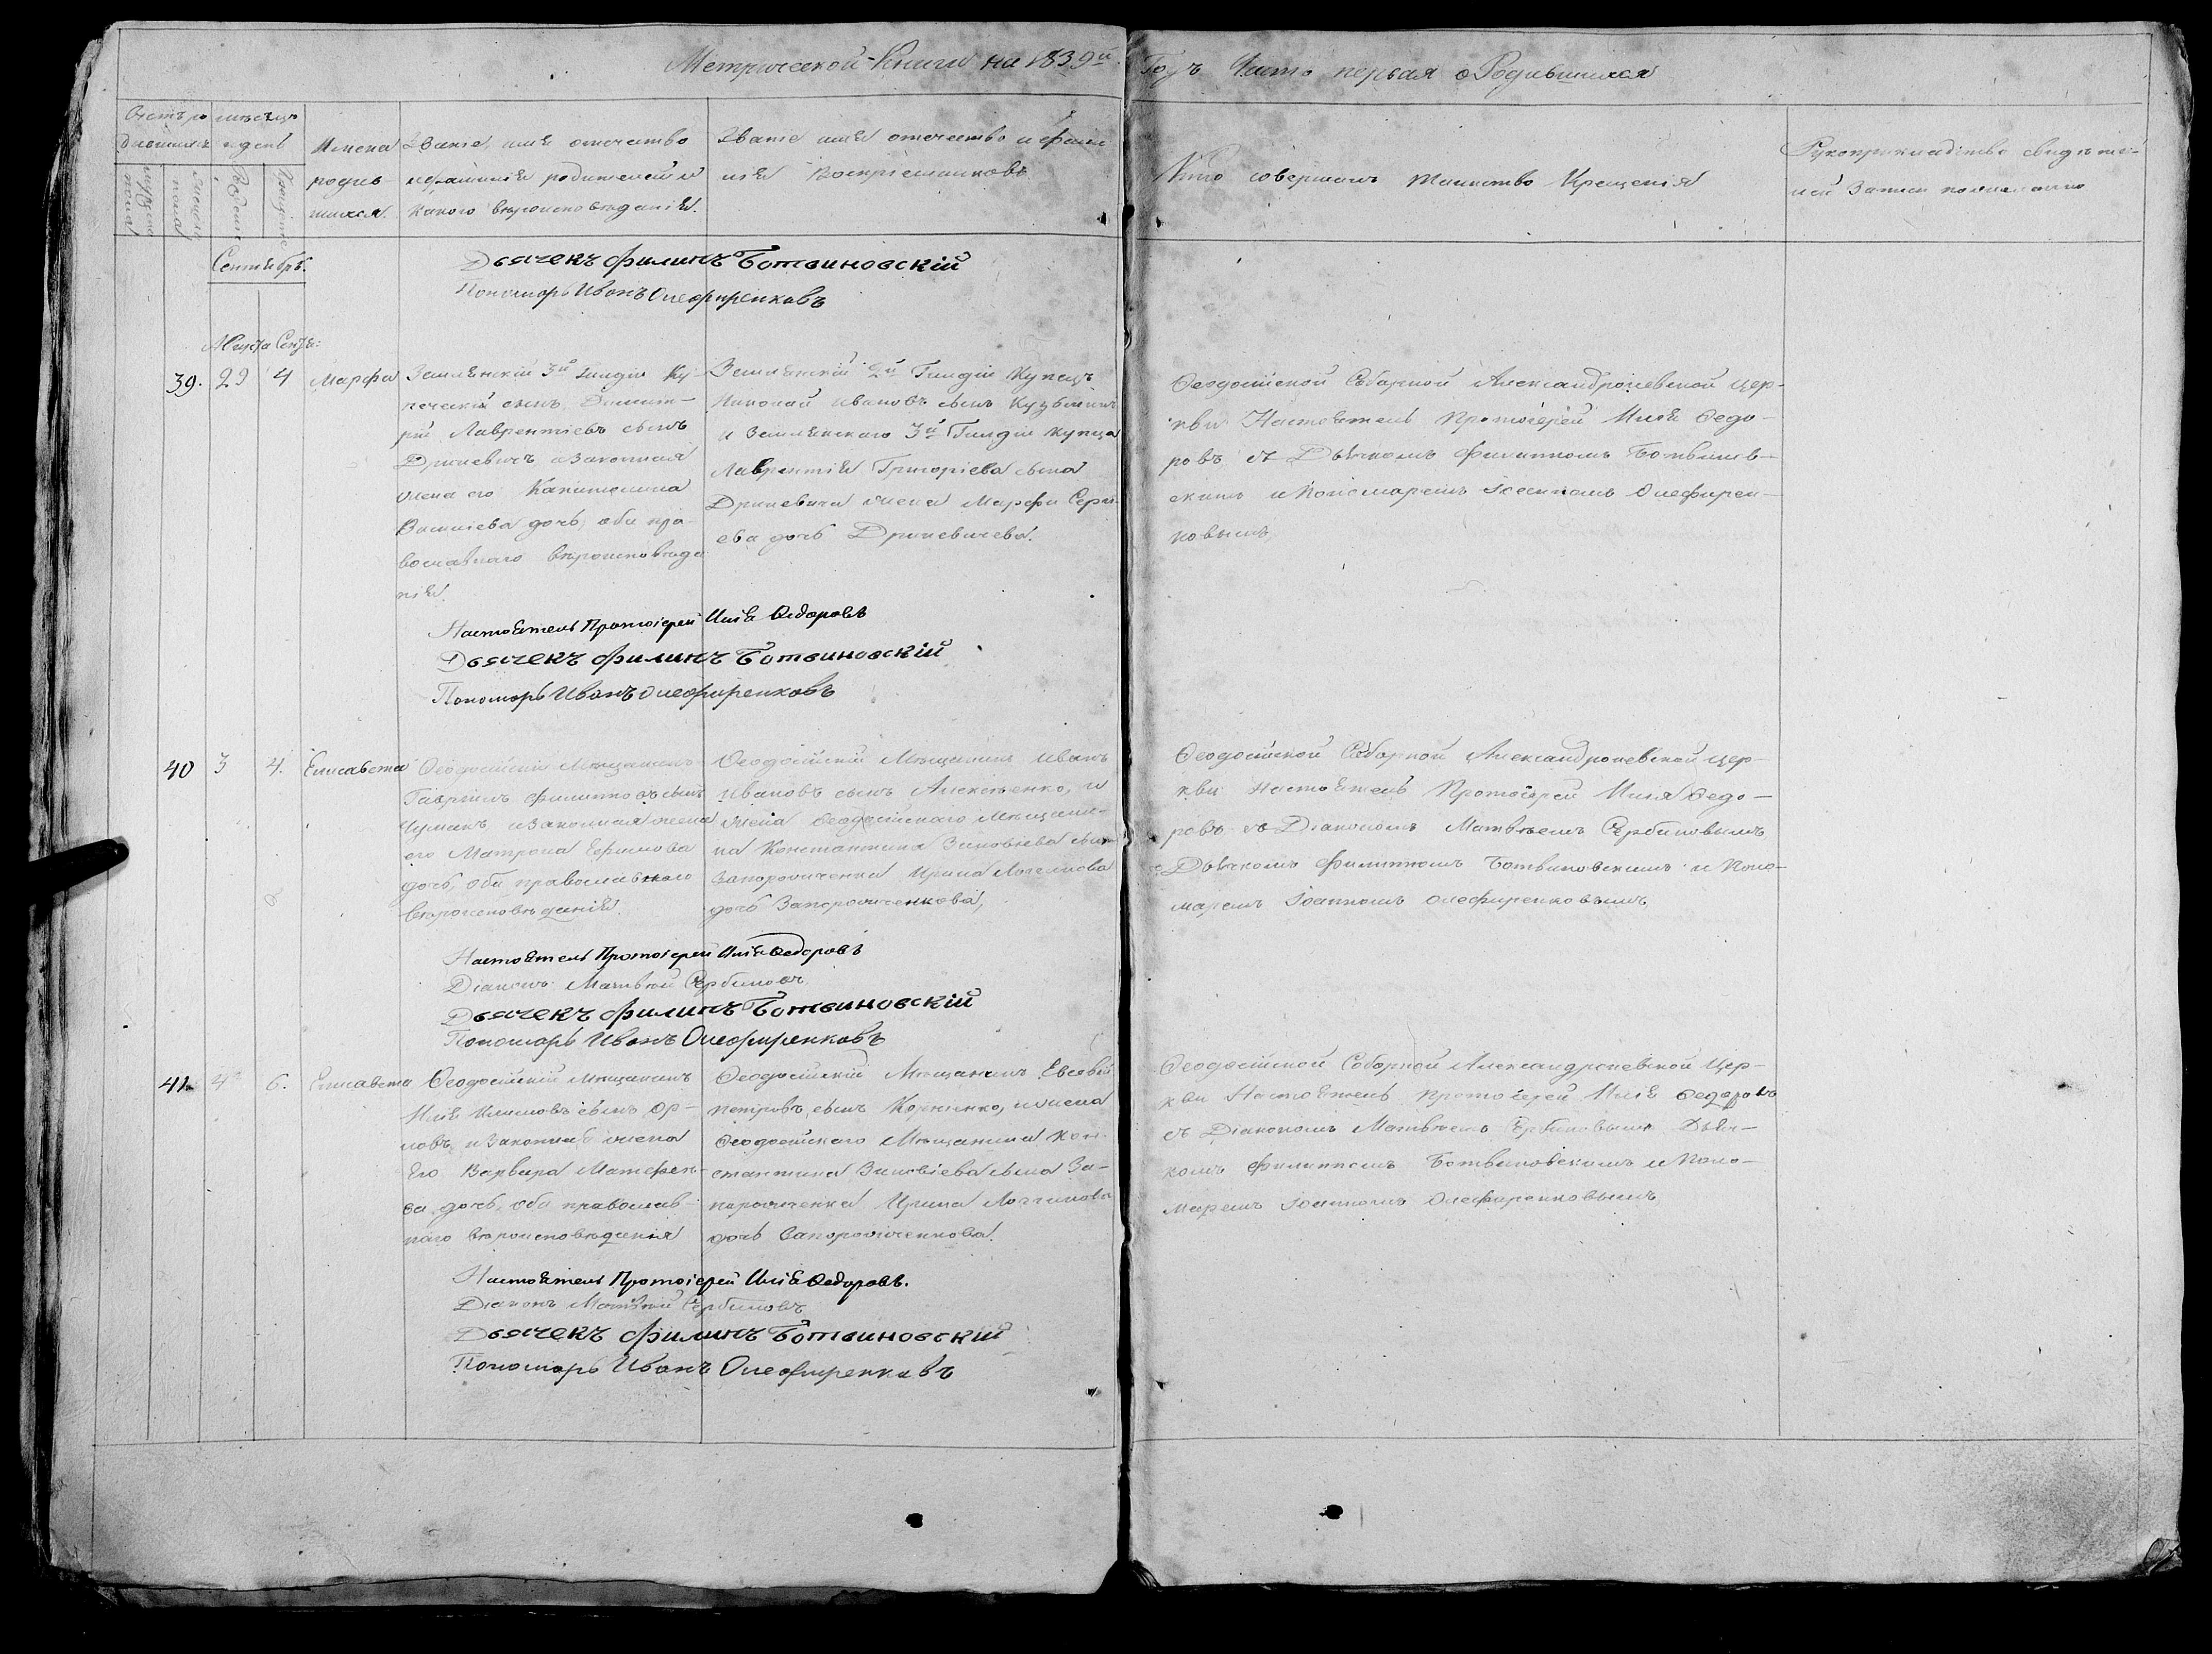 Метрической Книги на 1839й Годъ Часть первая о Родившихся
Счетъ ро
дившихся
мѣсяцъ
и день
мужеска
пола
женска
пола
Рожденiе
Крещенiе
Имена
родив-
шихся.
Званiе, имя отчество
и фамилiя родителей и
какого вѣроисповѣданiя.
Званiе имя отчество и фами
лiя Воспрiемниковъ
Кто совершалъ таинство Крещенiя
Рукоприкладство свидѣте-
лей Записи по желанiю
Сентябрь.
Дьячекъ Филипъ Ботвиновскiй
Пономарь Иванъ Олефиренковъ
Августа Сентя:
39. 29 4 Марфа
Земленскiй 3й гильдiи Ку-
печескiй сынъ Димит-
рiй Лаврентiевъ сынъ
Дриневичъ и законная
жена его Капитолина
Васильева дочь, оба пра-
вославнаго вѣроисповѣда
нiя.
2й Гильдiи Купецъ
Николай Ивановъ сынъ
и 3й Гильдiи купца
Лаврентiя Григорiева сына
Дриневича жена Марфа Серге
ева дочь Дриневичева.
Феодосiйской Соборной Александроневской цер-
кви Настоятель Протоiерей Илiя Федо-
ровъ съ Дьячкомъ Филиппомъ Ботвинов-
скимъ и Пономаремъ Iоанномъ Олефирен-
ковымъ,
Настоятель Протоiерей Илiя Федоровъ
Дьячекъ Филипъ Ботвиновскiй
Пономарь Иванъ Олефиренковъ
40 3 4. Елисавета
Феодосiйскiй Мѣщанинъ
Гаврiилъ Филипповъ сынъ
Чумакъ и законная жена
его Матрона Ефимова
дочь, оба православнаго
вѣроисповѣданiя.
Феодосiйскiй Мѣщанинъ Иванъ
Ивановъ сынъ Алексѣенко, и
жена Феодосiйскаго Мѣщани-
на Константина Зиновiева сына
Запорожченка Ирина Логгинова
дочь Запорожченкова,
Феодосiйской Соборной Александроневской цер-
кви Настоятель Протоiерей Илiя Федо-
ровъ съ Дiакономъ Матвѣемъ Сербиновымъ
Дьячкомъ Филиппомъ Ботвиновскимъ и Поно-
маремъ Iоанномъ Олефиренковымъ
Настоятель Протоiерей Илiя Федоровъ
Дiаконъ Матвѣй Сербиновъ
Дьячекъ Филипъ Ботвиновскiй
Пономарь Иванъ Олефиренковъ
41. 4 6. Елисавета
Феодосiйскiй Мѣщанинъ
Илiя Климовъ сынъ Ор-
ловъ и законная жена
Его Варвара
дочь, оба православ-
наго вѣроисповѣданiя
Феодосiйскiй Мѣщанинъ Евсевiй
Петровъ сынъ Корнiенко, и жена
Феодосiйскаго Мѣщанина Кон-
стантина Зиновiева сына За-
порожченка Ирина Логгинова
дочь Запорожченкова.
Феодосiйской Соборной Александроневской Цер-
кви Настоятель Протоiерей Илiя Федоровъ
съ Дiакономъ Матвѣемъ Сербиновымъ Дьяч-
комъ Филиппомъ Ботвиновскимъ и Поно-
маремъ Iоанномъ Олефиренковымъ
Настоятель Протоiерей Илiя Федоровъ.
Дiаконъ Матвѣй Сербиновъ
Дьячекъ Филипъ Ботвиновскiй
Пономарь Иванъ Олефиренковъ